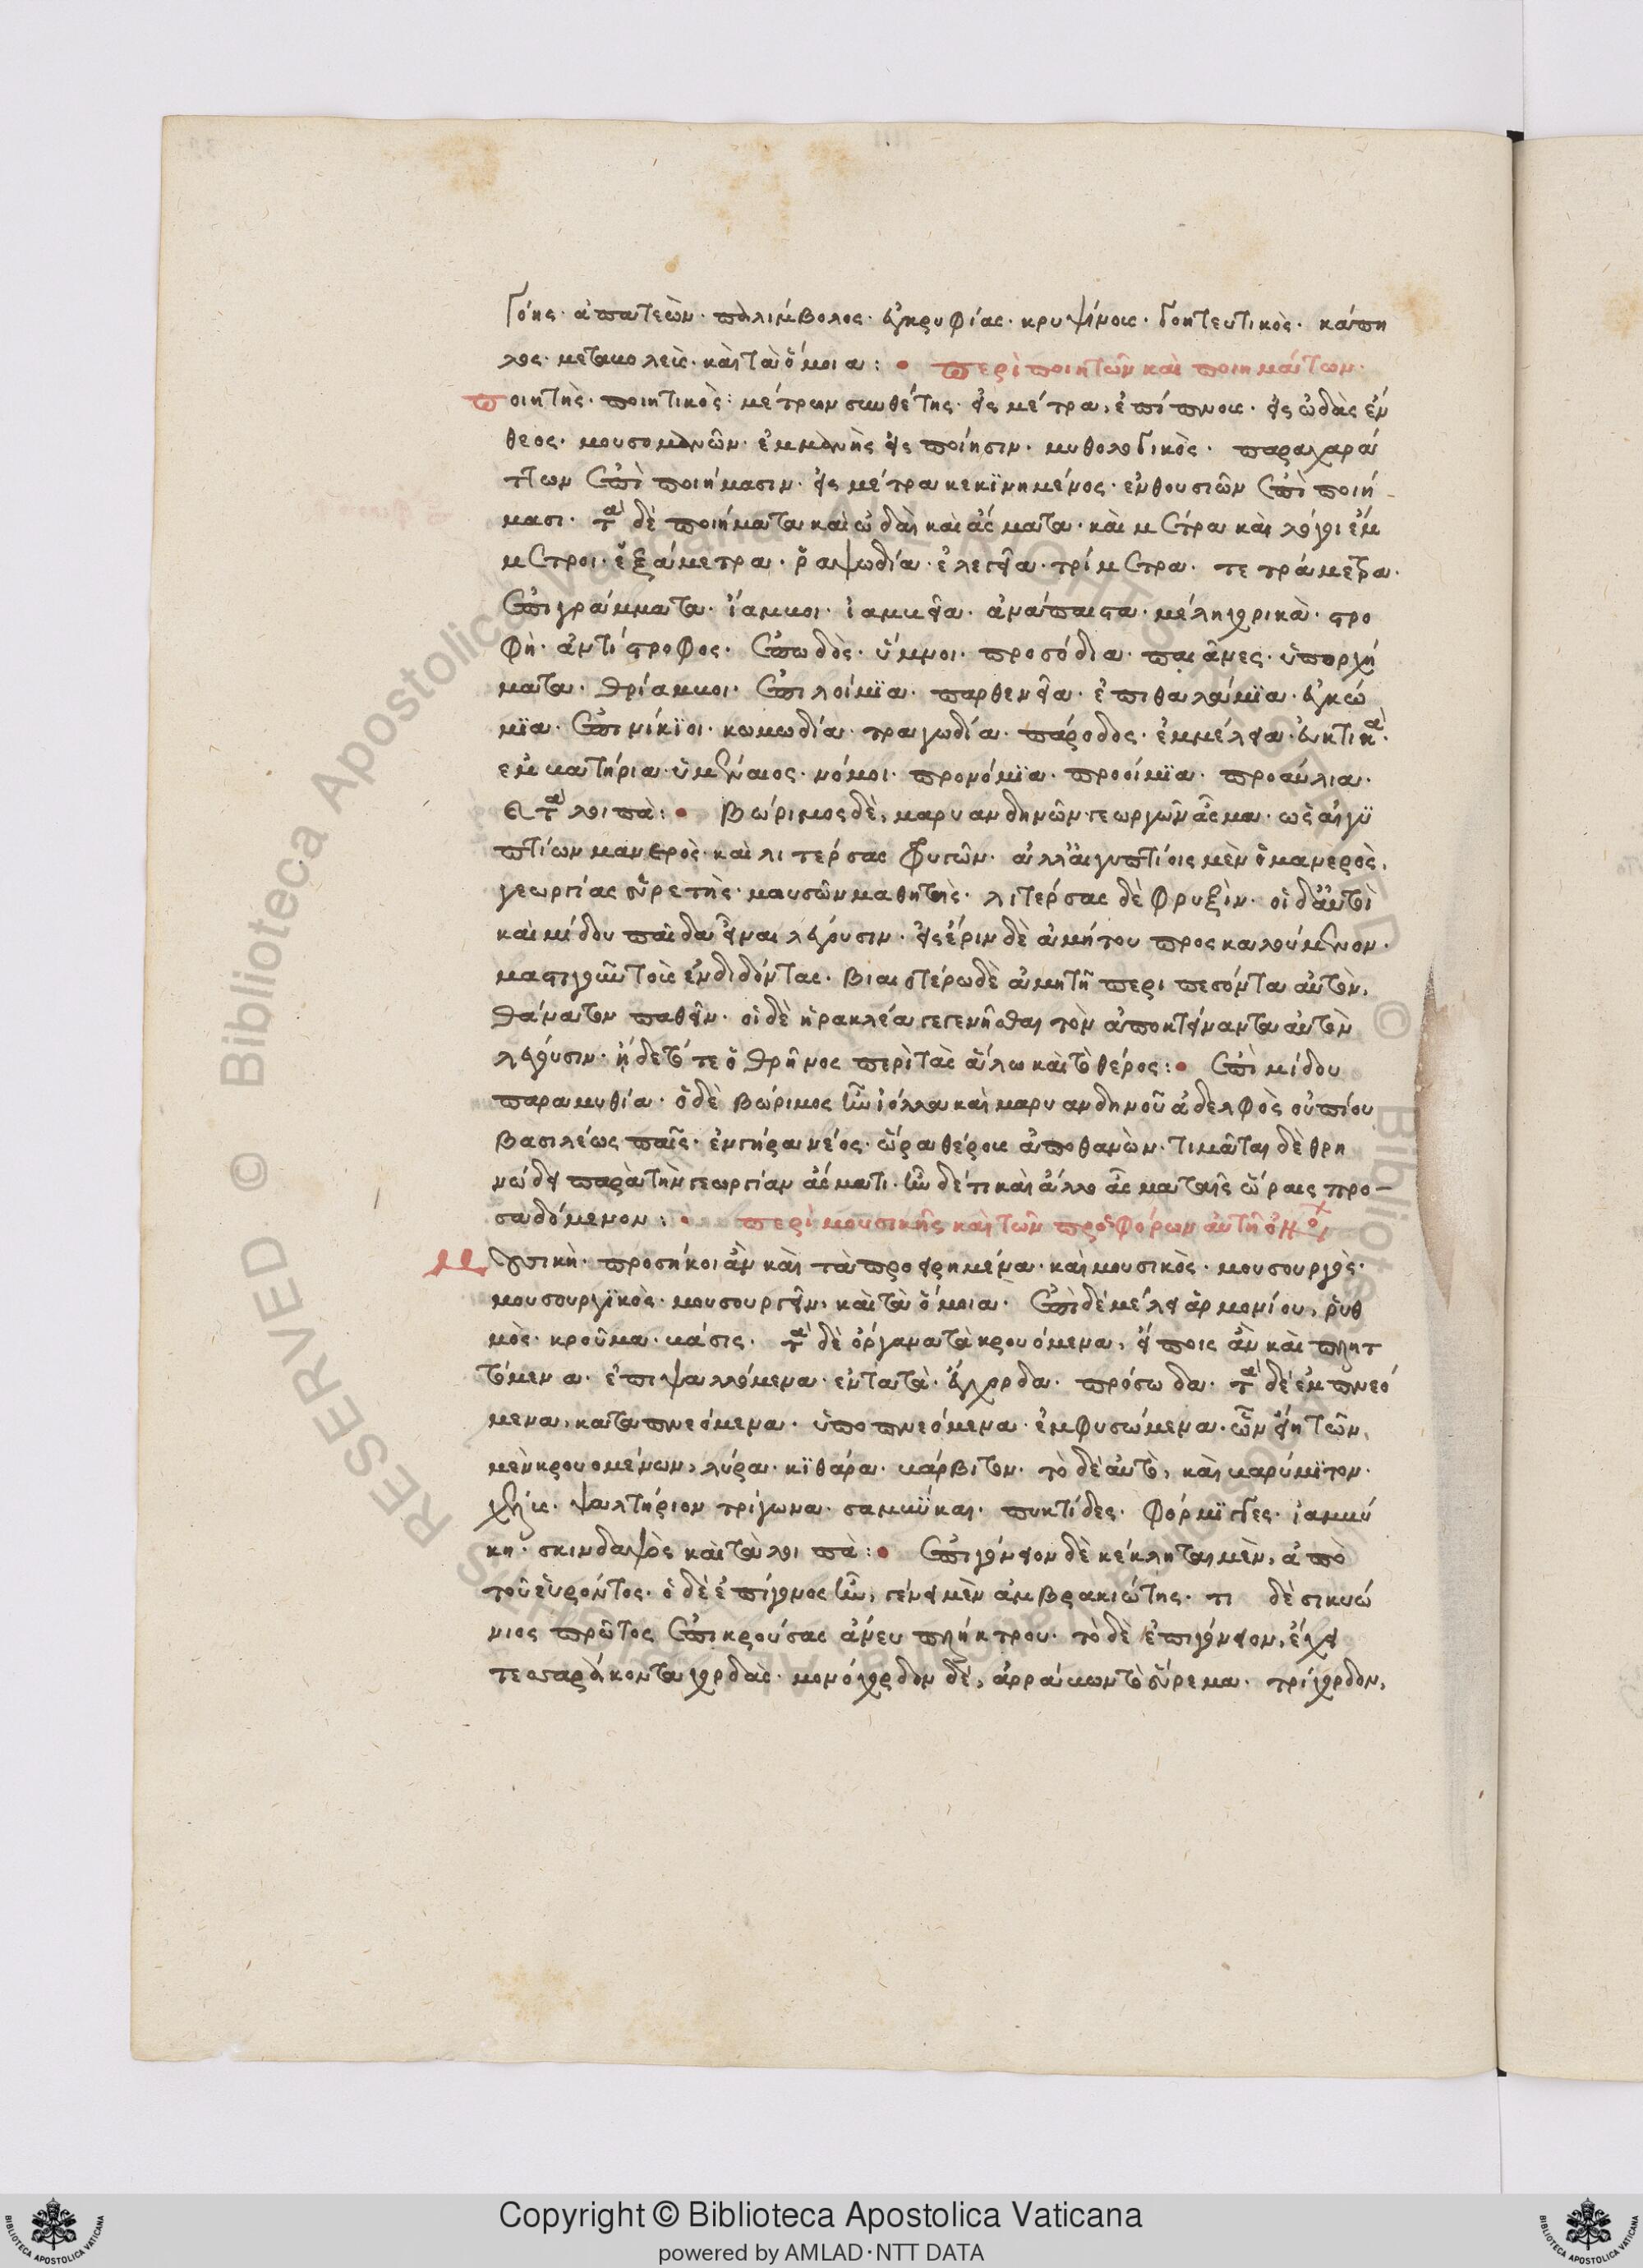 γόης· ἀπατεὼν· παλίμβολος· ἐγκρυφίας· κρυψίνους· γοητευτικὸς· κάπη
λος· μεταβολεὺς· καὶ τὰ ὅμοια: • περὶ ποιητῶν καὶ ποιημάτων·
ποιητὴς· ποιητικὸς· μέτρων συνθέτης· εἰς μέτρα, ἐπίπνους· εἰς ὠδὰς ἔν
θεος· μουσομανῶν· ἐμμανὴς εἰς ποίησιν· μυθολογικὸς· παραχαράτ
των ἐπὶ ποιήμασιν· εἰς μέτρα κεκϊνημένος· ἐνθουσιῶν ἐπὶ ποιή
μασι· τὰ δὲ ποιήματα καὶ ὠδαὶ καὶ ἄσματα· καὶ μέτρα καὶ λόγοι ἔμ
μετροι· ἑξάμετρα· ῥαψωδία· ἐλεγεῖα· τρίμετρα· τετράμετρα·
ἐπιγράμματα· ἴαμβοι· ἰαμβεῖα· ἀνάπαιστα· μέλη χορικὰ· στρο
φὴ· ἀντίστροφος· ἐπωδὸς· ὕμνοι· προσόδια· παιᾶνες· ὑπορχή
ματα· θρίαμβοι· ἐπιλοίμϊα· παρθενεῖα· ἐπιθαλάμϊα· ἐγκώ
μϊα· ἐπινίκϊοι· κωμωδία· τραγωδία· πάροδος· ἐμμέλεια· εὐκτικὰ·
ἐμβατήρια· ὑμέναιος· νόμοι· προνόμϊα· προοίμϊα· προαύλια·
καὶ τὰ λοιπὰ: • Βώριμος δὲ, μαρυανδηνῶν γεωργῶν ἆσμα· ὡς αἰγϋ
πτίων μανερὸς· καὶ λιτέρσας φρυγῶν· ἀλλ' αἰγυπτίοις μὲν ὁ μανερὸς,
γεωργίας εὑρετὴς· μουσῶν μαθητὴς· λιτέρσας δὲ φρυξὶν· οἱ δ' αὐτὸ
καὶ μίδου παῖδα εἶναι λέγουσιν· εἰς ἔριν δὲ ἀμήτου προσκαλούμενον·
μαστιγοῦν τοὺς ἐνδιδόντας· βιαιοτέρω δὲ ἀμητῆ περιπεσόντα αὐτὸν,
θάνατον παθεῖν· οἱ δὲ ἡρακλέα γεγενῆσθαι τὸν ἀποκτείναντα αὐτὸν
λέγουσιν· ἤδετό τε ὁ θρῆνος περὶ τὰς ἅλω καὶ τὸ θέρος: • ἐπὶ μίδου
παραμυθία· ὁ δὲ βώριμος ἦν ἰόλλα καὶ μαρυανδηνοῦ ἀδελφὸς οὐπίου
βασιλέως παῖς· ἐν γήρα νέος· ὥρα θέρους ἀποθανὼν· τιμᾶται δὲ θρη
νώδει παρὰ τὴν γεωργίαν ἄσματι· ἦν δέ τι καὶ ἄλλο ἆσμα ταῖς ὥραις προ-
σαδόμενον: • περὶ μουσικῆς καὶ τῶν προσφόρων αὐτῆ
μουσικὴ· προσήκοι ἂν καὶ τὰ προειρημένα· καὶ μουσικὸς· μουσουργὸς·
μουσουργϊκὸς· μουσουργεῖν, καὶ τὰ ὅμοια· ἐπὶ δὲ μέλει ἁρμονίου, ῥυθ
μὸς· κροῦμα· βάσις· τὰ δὲ ὄργανα τὰ κρουόμενα, εἴποις ἂν καὶ πλητ
τόμενα· ἐπιψαλλόμενα· ἐντατὰ· ἔγχορδα· πρόσωδα· τὰ δὲ ἐμπνεό
μενα, καταπνεόμενα· ὑποπνεόμενα· ἐμφυσώμενα· ὧν εἴη τῶν,
μὲν κρουομένων, λύρα· κϊθάρα· βάρβιτον· τὸ δὲ αὐτὸ, καὶ βαρύμϊτον·
χέλυς· ψαλτήριον τρίγωνα· σαμβύκαι· πυκτίδες· φόρμϊγγες· ἰαμβύ
κη· σκινδαψὸς καὶ τὰ λοιπὰ: • ἐπιγόνειον δὲ κέκληται μὲν, ἀπὸ
τοῦ εὑρόντος· ὁ δὲ ἐπίγονος ἦν, γένει μὲν ἀμβρακιώτης· τι δὲ σικυώ
νιος πρῶτος ἐπικρούσας ἄνευ πλήκτρου· τὸ δὲ ἐπιγόνειον, ἔχει
τεσσαράκοντα χορδὰς· μονόχορδον δὲ, ἀρράβων τὸ εὕρεμα· τρίχορδον,
Copyright © Biblioteca Apostolica Vaticana
powered by AMLAD·NTT DATA